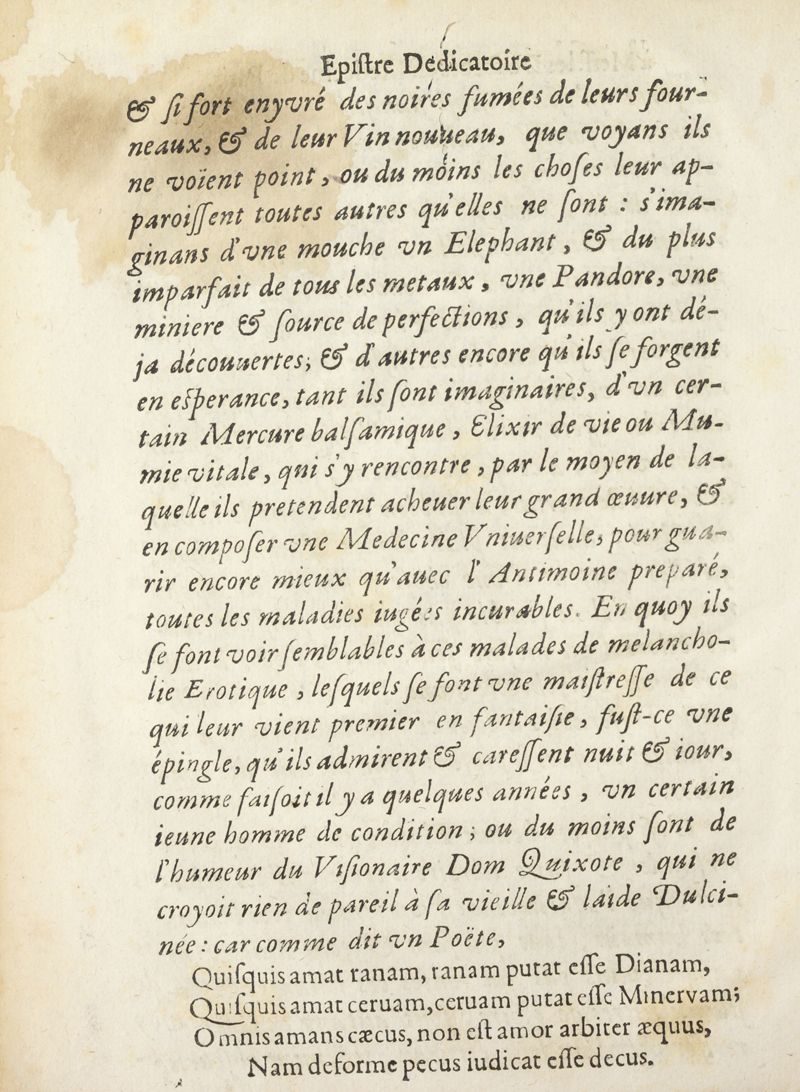 Epiſtre Dédicatoire
& ſi fort enyvré des noires fumées de leurs four-
neaux, & de leur Vin nouueau, que voyans ils
ne voïent point, ou du moins les choſes leur ap-
paroiſſent toutes autres qu'elles ne ſont : s'ima-
ginans d'vne mouche vn Elephant, & du plus
imparfait de tous les metaux, vne Pandore, vne
miniere & ſource de perfections, qu'ils y ont dé-
ja découuertes; & d'autres encore qu'ils ſe forgent
en eſperance, tant ils ſont imaginaires, d'vn cer-
tain Mercure balſamique, Elixir de vie ou Mu-
mie vitale, qui s'y rencontre, par le moyen de la-
quelle ils pretendent acheuer leur grand œuure, &
en compoſer vne Medecine Vniuerſelle, pour gua-
rir encore mieux qu'auec l'Antimoine preparé,
toutes les maladies iugées incurables. En quoy ils
ſe font voir ſemblables à ces malades de melancho-
lie Erotique, leſquels ſe font vne maiſtreſſe de ce
qui leur vient premier en fantaiſie, fuſt-ce vne
épingle, qu'ils admirent & careſſent nuit & iour,
comme faiſoit il y a quelques années, vn certain
ieune homme de condition; ou du moins ſont de
l'humeur du Viſionaire Dom Quixote, qui ne
croyoit rien de pareil à ſa vieille & laide Dulci-
née : car comme dit vn Poëte,
Quiſquis amat ranam, ranam putat eſſe Dianam,
Quiſquis amat ceruam, ceruam putat eſſe Minervam;
Omnis amans cæcus, non eſt amor arbiter æquus,
Nam deforme pecus iudicat eſſe decus.